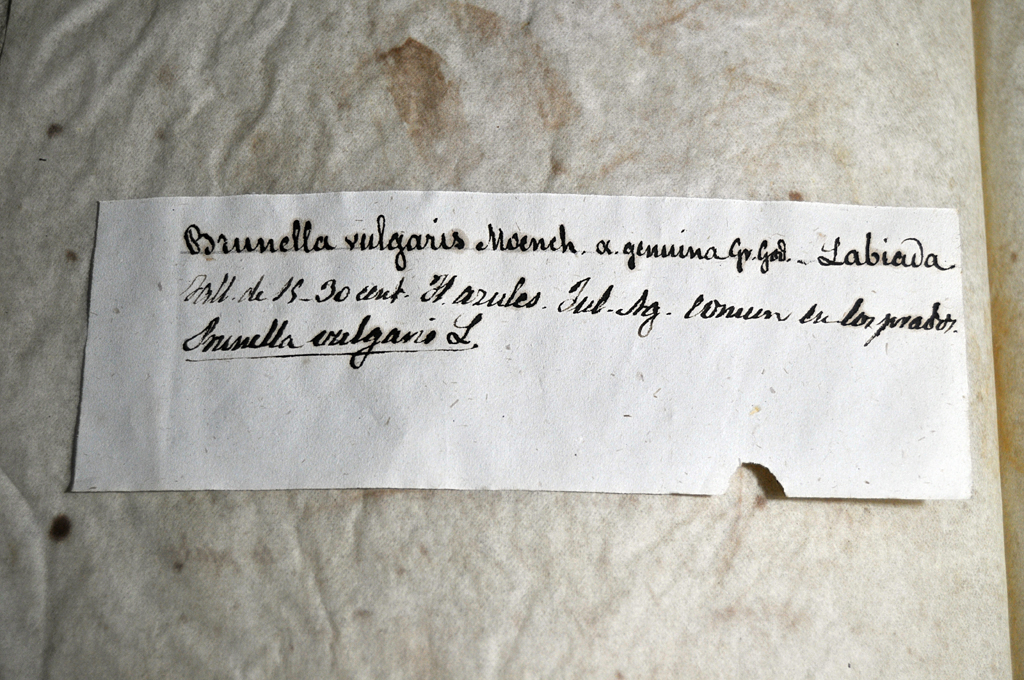 Brunella vulgaris Moench. α. genuina Gr. God. - Labiada
Tall. de 15-30 cent. Fl azules. Jul. Ag. Comun en los prados.
Prunella vulgaris L.